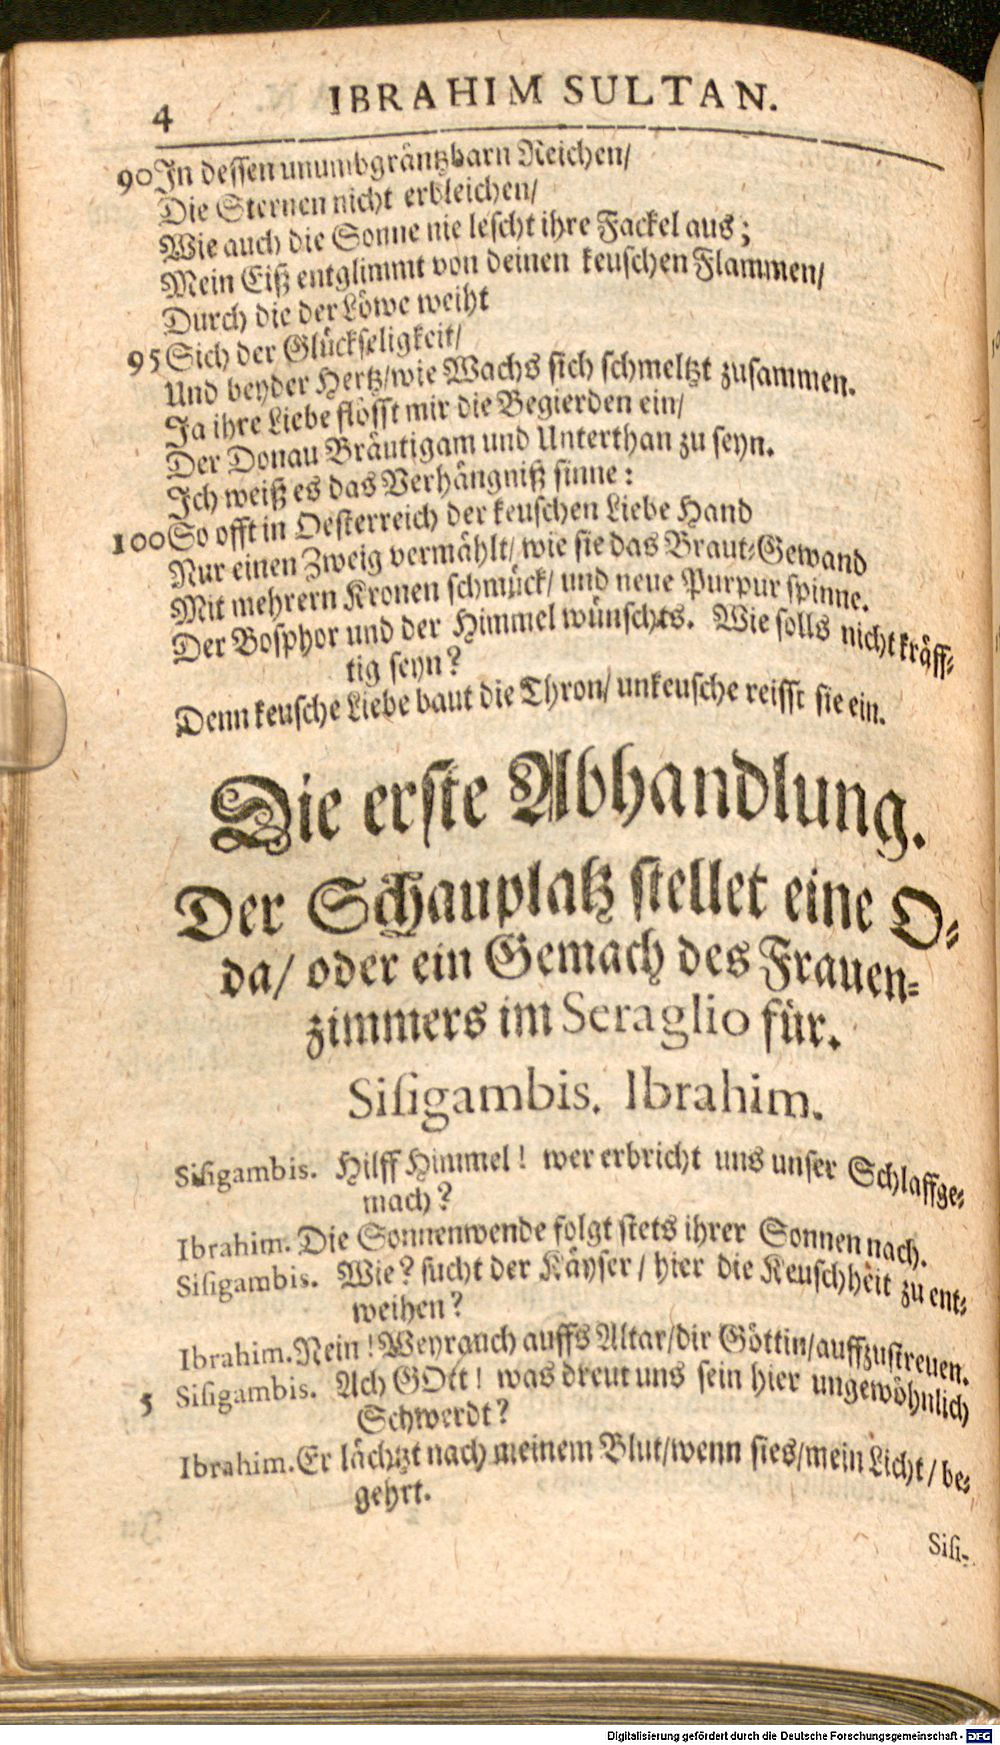 4 IBRAHIM SULTAN.
90 In dessen unumbgräntzbarn Reichen/
Die Sternen nicht erbleichen/
Wie auch die Sonne nie lescht ihre Fackel aus;
Mein Eiß entglimmt von deinen keuschen Flammen/
Durch die der Löwe weiht
95 Sich der Glückseligkeit/
Und beyder Hertz/wie Wachs sich schmeltzt zusammen.
Ja ihre Liebe flösst mir die Begierden ein/
Der Donau Bräutigam und Unterthan zu seyn.
Ich weiß es das Verhängniß sinne:
100 So offt in Oesterreich der keuschen Liebe Hand
Nur einen Zweig vermählt/ wie sie das Braut-Gewand
Mit mehrern Kronen schmück/ und neue Purpur spinne.
Der Bosphor und der Himmel wünschts. Wie solls nicht kräff-
tig seyn?
Denn keusche Liebe baut die Thron/ unkeusche reisst sie ein.
Die erste Abhandlung.
Der Schauplatz stellet eine O-
da/ oder ein Gemach des Frauen-
zimmers im Seraglio für.
Sisigambis. Ibrahim.
Sisigambis. Hilff Himmel! wer erbricht uns unser Schlaffge-
mach?
Ibrahim. Die Sonnenwende folgt stets ihrer Sonnen nach.
Sisigambis. Wie? sucht der Käyser / hier die Keuschheit zu ent-
weihen?
Ibrahim. Nein! Weyrauch auffs Altar/dir Göttin/auffzustreuen.
5 Sisigambis. Ach GOtt! was dreut uns sein hier ungewöhnlich
Schwerdt?
Ibrahim. Er lächtzt nach meinem Blut/wenn sies/mein Licht/ be-
gehrt.
Sisi-
Digitalisierung gefördert durch die Deutsche Forschungsgemeinschaft - DFG